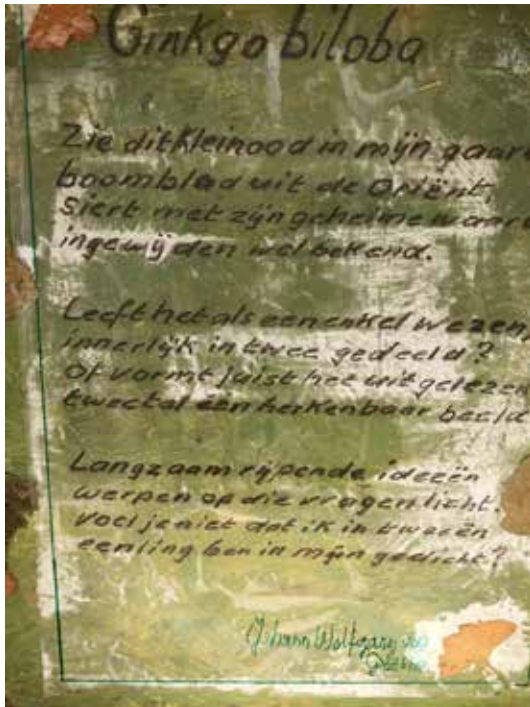 Ginkgo biloba
Zie dit kleinood in mijn gaard
boomblad uit de Oriënt,
Siert met zijn geheime waard
ingewijden welbekend.
Leeft het als een enkel wezen,
innerlijk in twee gedeeld?
Of vormt juist het uitgelezen
tweetal één herkenbaar beeld
Langzaam rijpende ideeën
werpen op die vragen licht.
Voel je niet dat ik in tweeën
eenling ben in mijn gedicht?
Johann Wolfgang von
Goethe